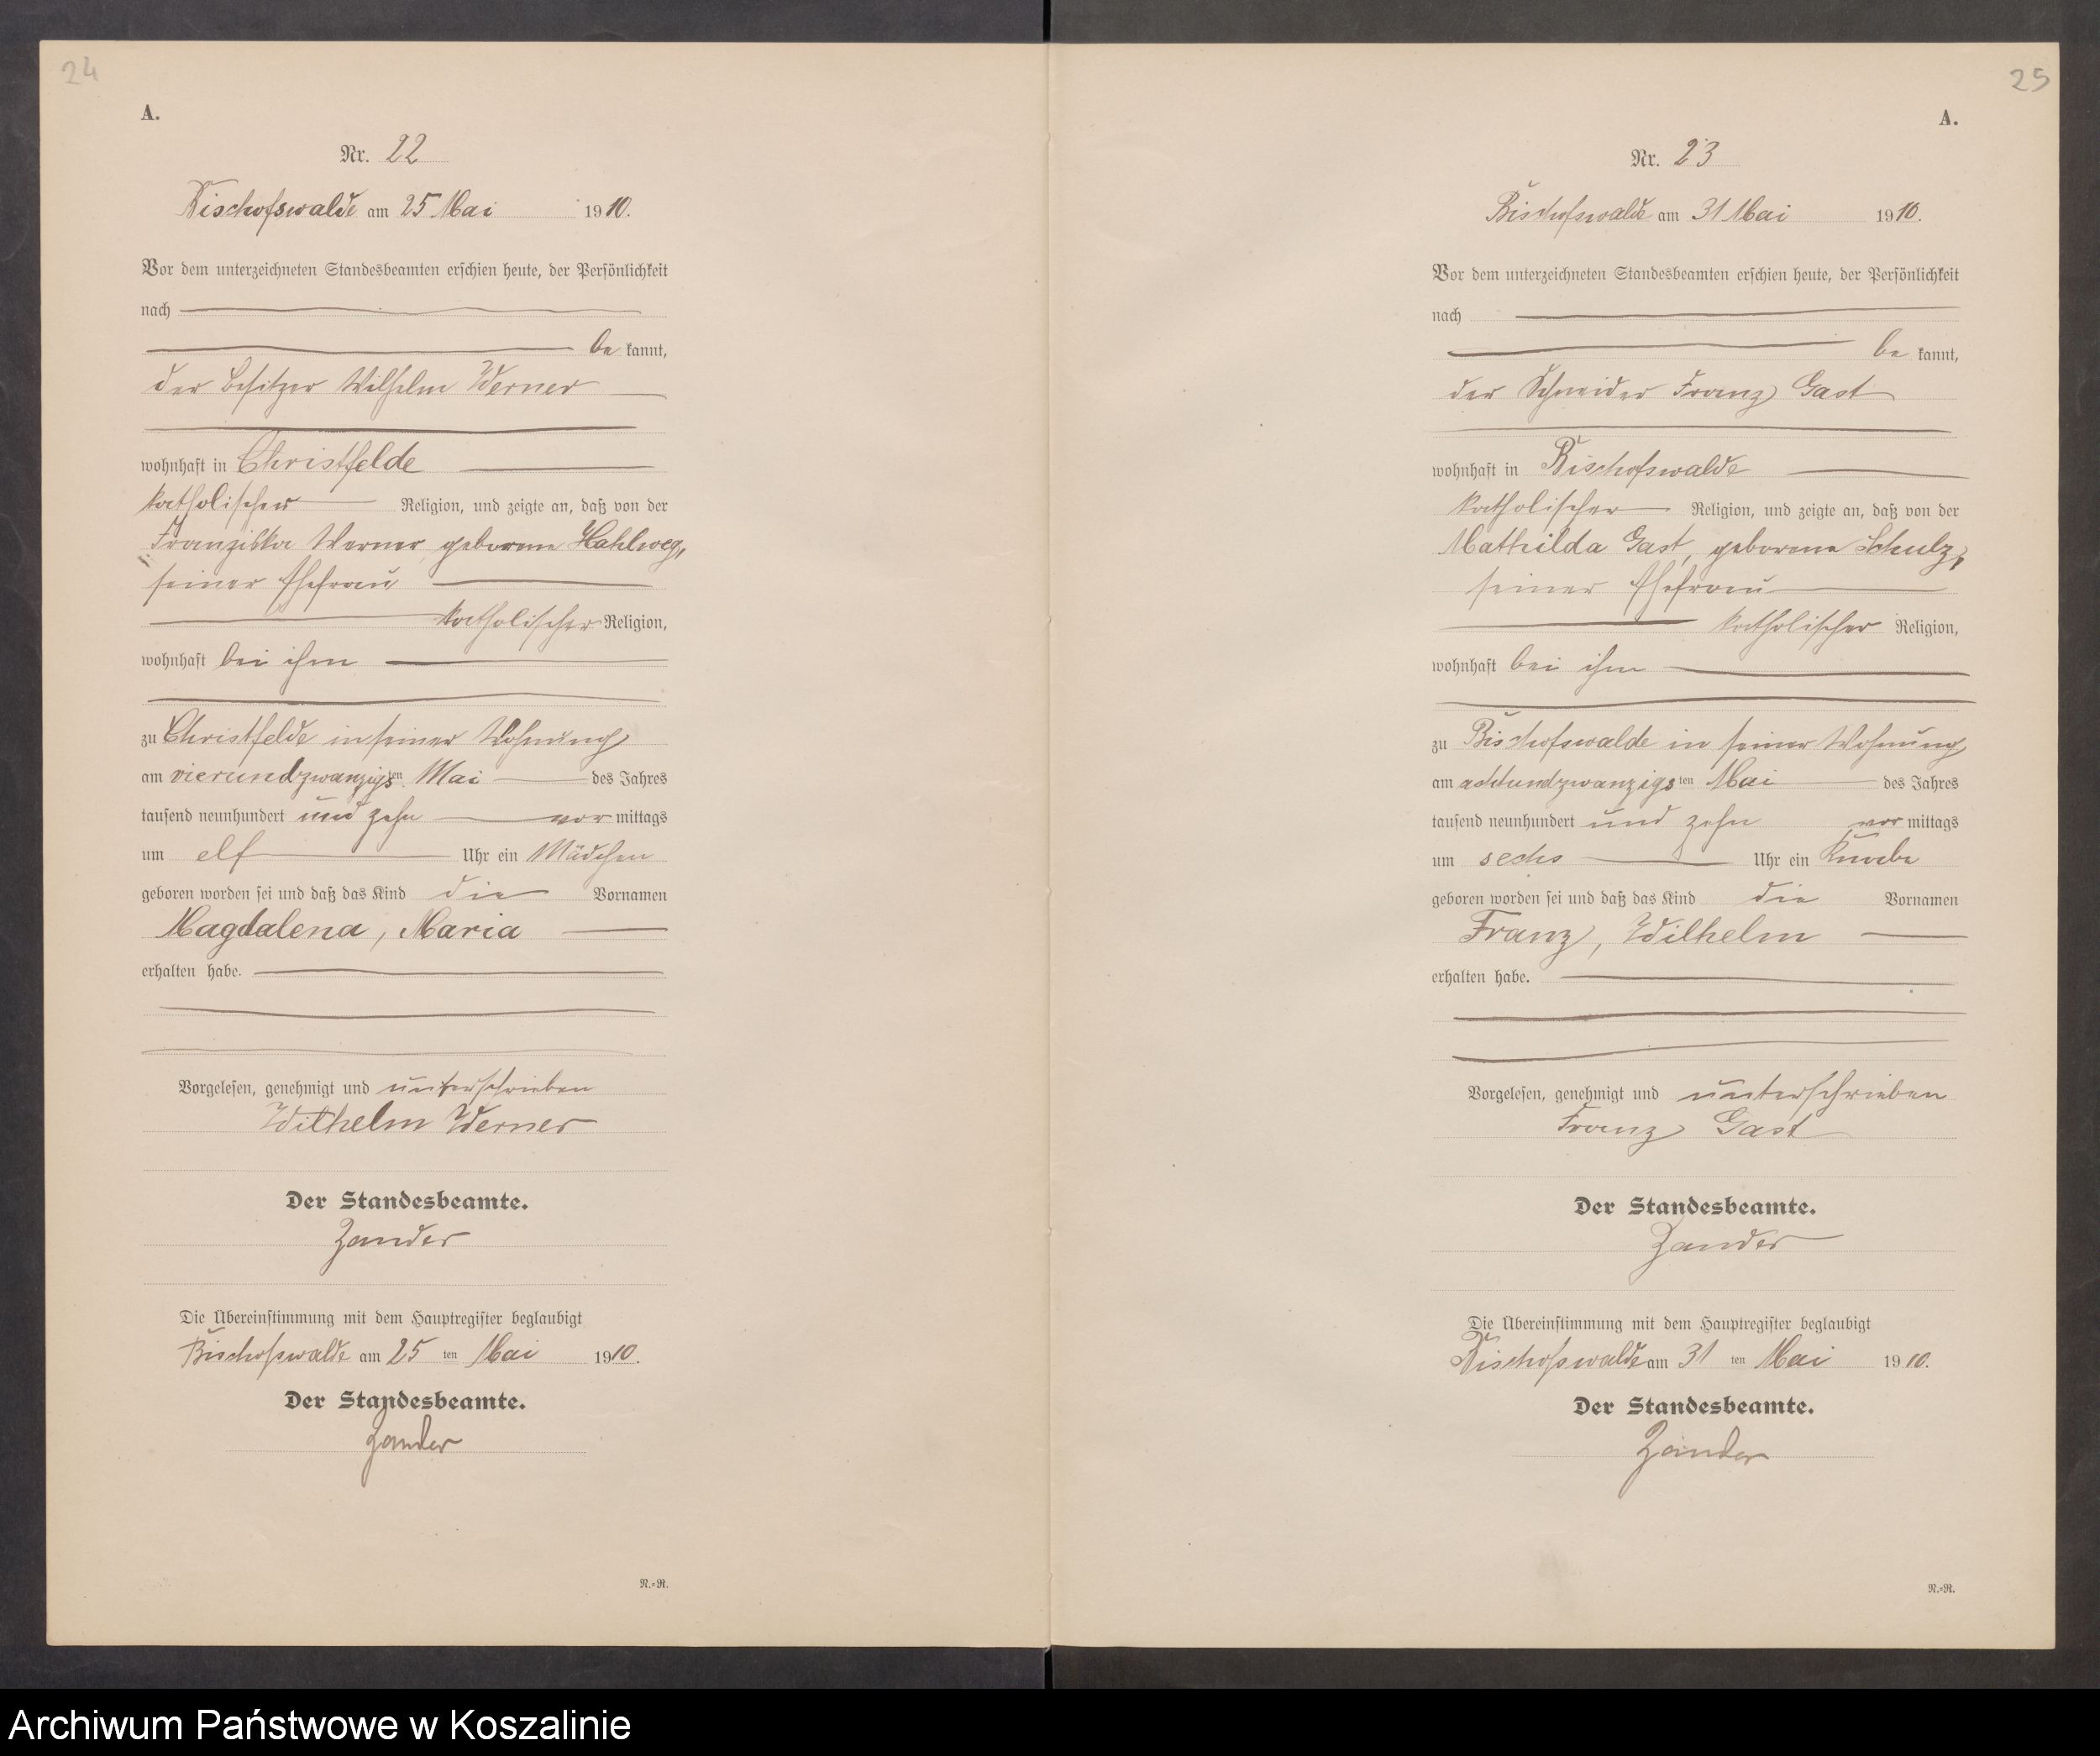 24
A.
Nr. 22
Bischofswalde am 25 Mai 1910.
Vor dem unterzeichneten Standesbeamten erschien heute, der Persönlichkeit
nach
be kannt,
der Besitzer Wilhelm Werner
wohnhaft in Christfelde
katholischer Religion, und zeigte an, daß von der
Franziska Werner geborene Hahlweg,
seiner Ehefrau
katholischer Religion,
wohnhaft bei ihm
zu Christfelde in seiner Wohnung
am vierundzwanzigsten Mai des Jahres
tausend neunhundert und zehn vor mittags
um elf Uhr ein Mädchen
geboren worden sei und daß das Kind die Vornamen
Magdalena, Maria
erhalten habe.
Vorgelesen, genehmigt und unterschrieben
Wilhelm Werner
Der Standesbeamte.
Zander
Die Übereinstimmung mit dem Hauptregister beglaubigt
Bischofswalde am 25 ten Mai 1910.
Der Standesbeamte.
Zander
N.=R.
25
A.
Nr. 23
Bischofswalde am 31 Mai 1910.
Vor dem unterzeichneten Standesbeamten erschien heute, der Persönlichkeit
nach
be kannt,
der Schneider Franz Gast
wohnhaft in Bischofswalde
katholischer Religion, und zeigte an, daß von der
Mathilda Gast, geborene Schulz,
seiner Ehefrau
katholischer Religion,
wohnhaft bei ihm
zu Bischofswalde in seiner Wohnung
am achtundzwanzigsten Mai des Jahres
tausend neunhundert und zehn vor mittags
um sechs Uhr ein Knabe
geboren worden sei und daß das Kind die Vornamen
Franz, Wilhelm
erhalten habe.
Vorgelesen, genehmigt und unterschrieben
Franz Gast
Der Standesbeamte.
Zander
Die Übereinstimmung mit dem Hauptregister beglaubigt
Bischofswalde am 31 ten Mai 1910.
Der Standesbeamte.
Zander
N.=R.
Archiwum Państwowe w Koszalinie